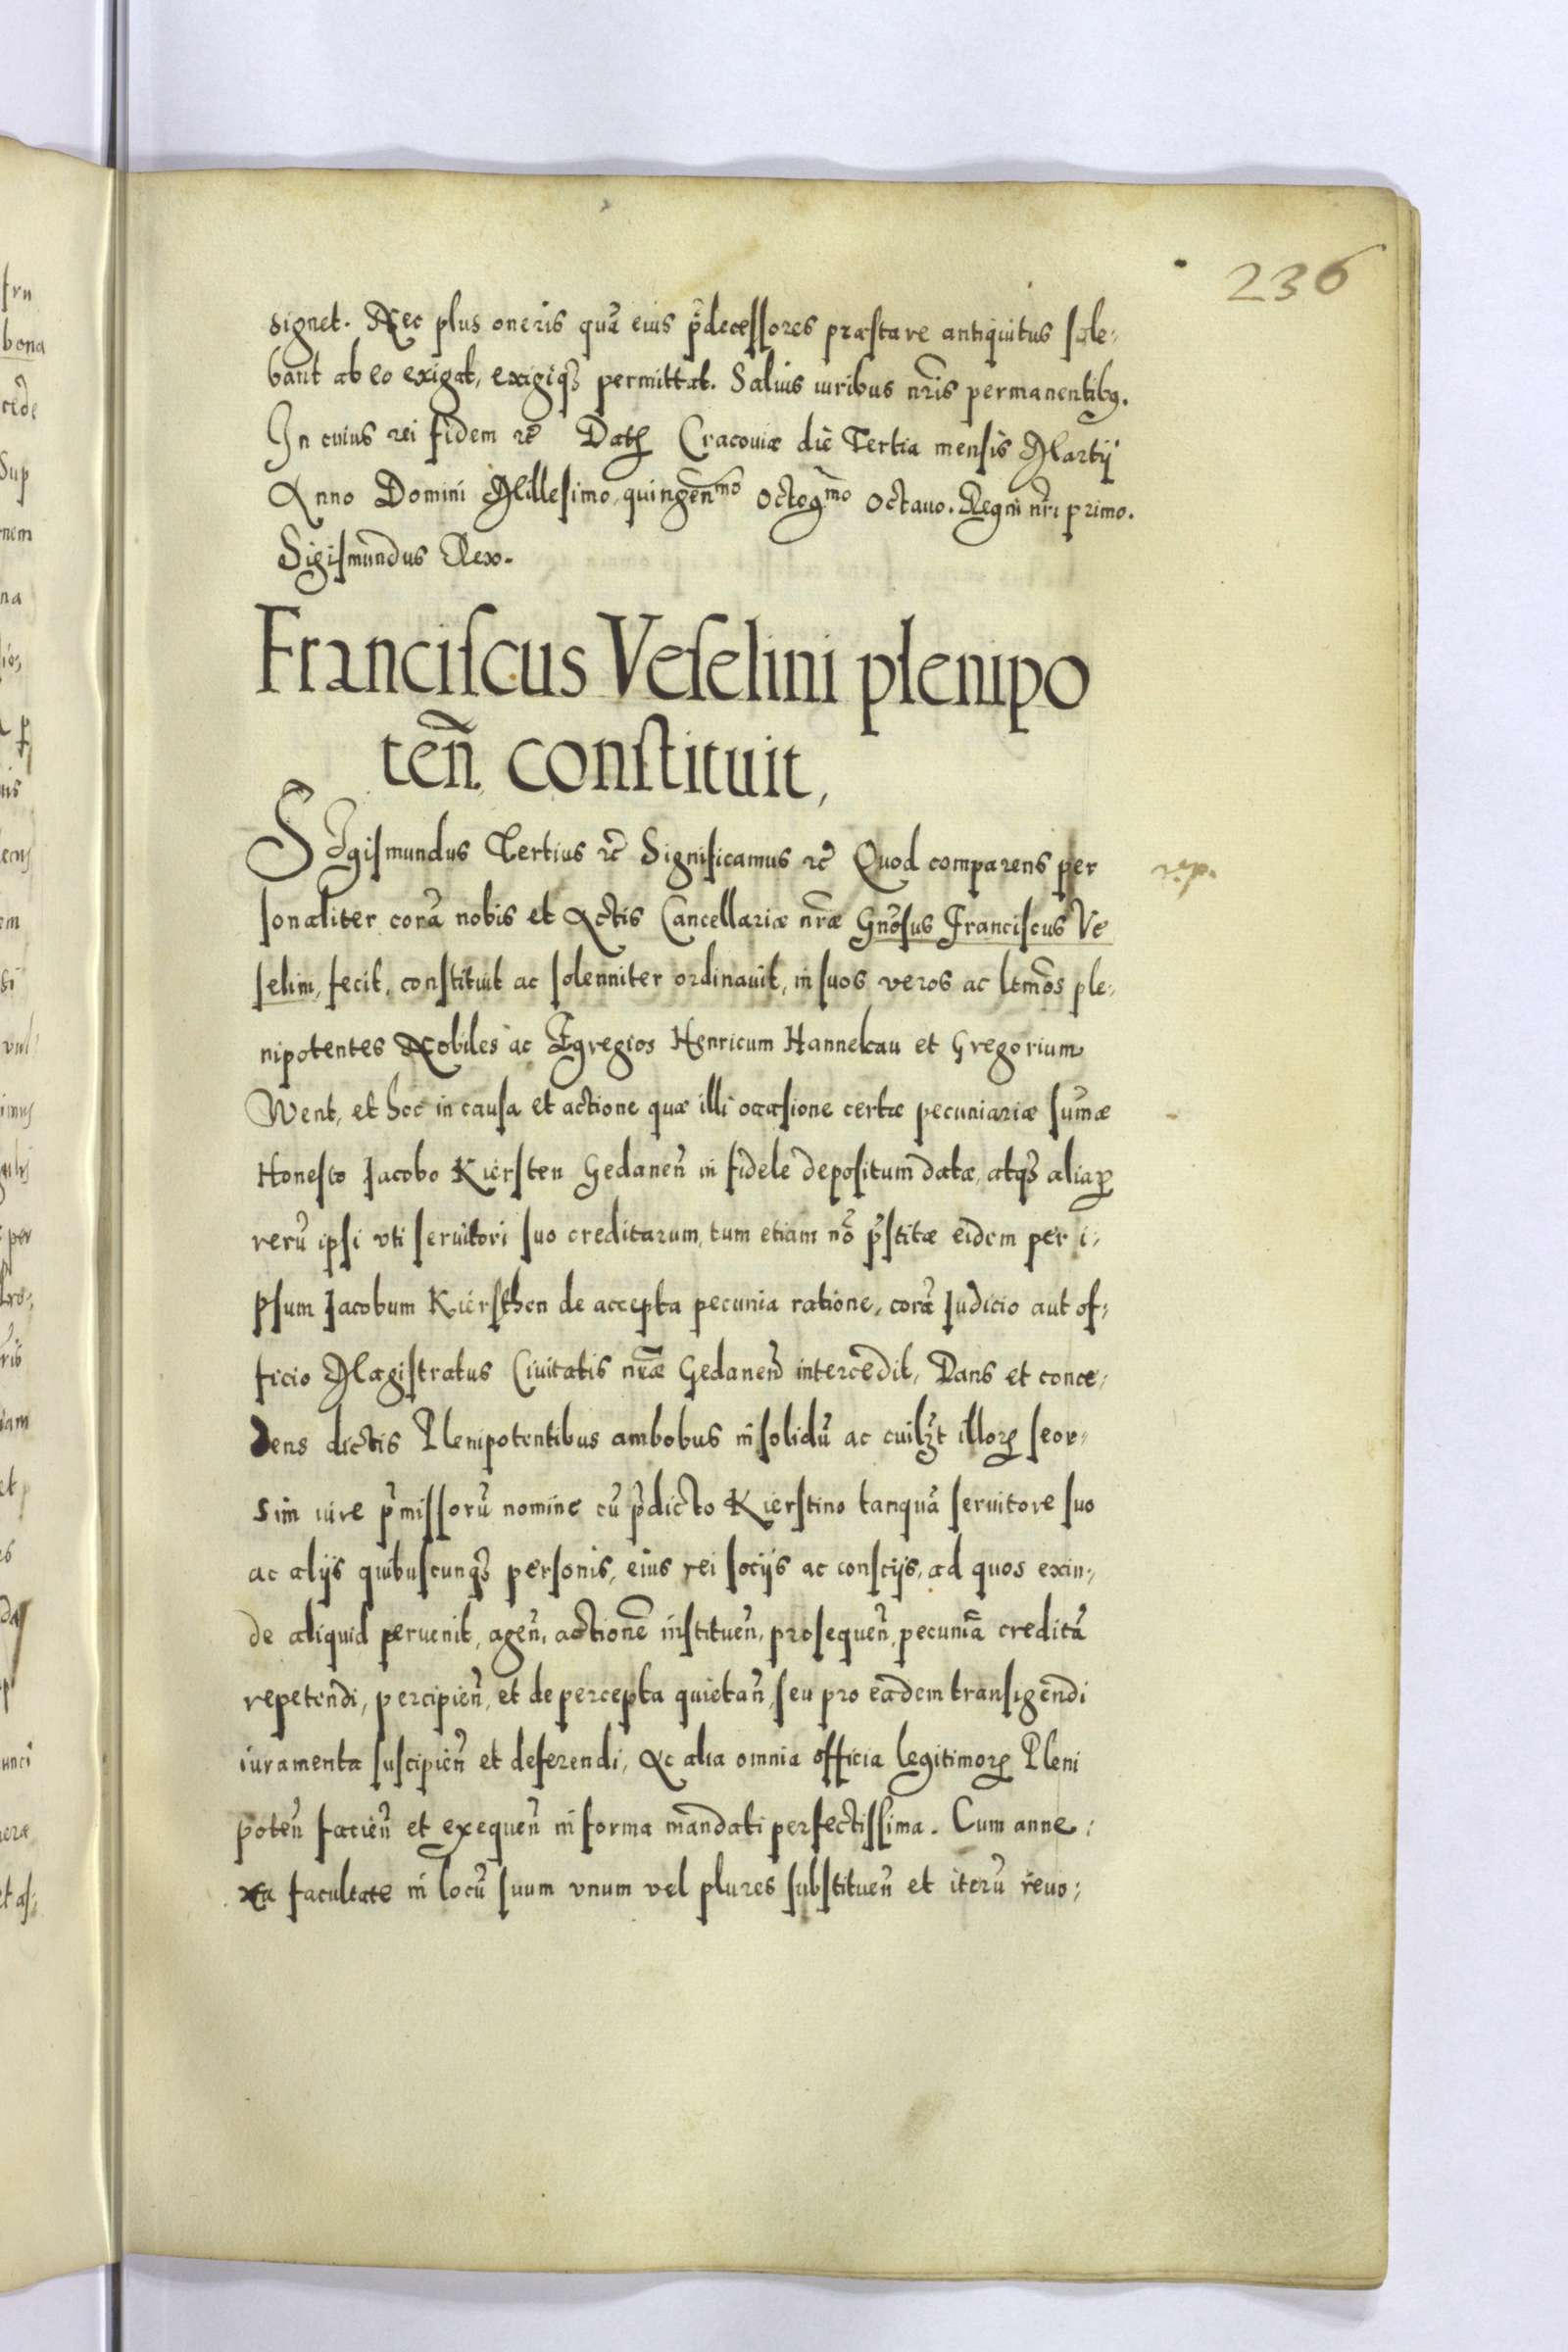 236
signet. Nec plus oneris quā eius p̄decessores præstare antiquitus sole,
bant ab eo exigat, exigiq₃ permittat. Saluis iuribus nr̄is permanentibꝰ.
In cuius rei fidem ꝛc̄ Datꝭ Cracouiæ die Tertia mensis Martij
Anno Domini Millesimo, quingen̄mo Octogmo Octauo. Regni nr̄i primo.
Sigismundus Rex.
Franciſcus Veſelini plenipo
ten̄. conſtituit,
SIgismundus Tertius ꝛc̄ Significamus ꝛc̄ Quod comparens per
sonaliter corā nobis et Actis Cancellariæ nr̄æ Gn̄osus Franciscus Ve
selini, fecit, constituit ac solenniter ordinauit, in suos veros ac ltm̄os ple,
nipotentes Nobiles ac Egregios Henricum Hannekau et Gregorium
Went, et hoc in causa et actione quæ illi occasione certæ pecuniariæ sum̄æ
Honesto Jacobo Kiersten Gedanen̄ in fidele depositum datæ, atq₃ aliaꝝ
rerū ipsi vti seruitori suo creditarum, tum etiam nō p̄stitæ eidem per i,
psum Jacobum Kiersthen de accepta pecunia ratione, corā Judicio aut of,
ficio Magistratus Ciuitatis nr̄æ Gedanen̄ intercedit, Dans et conce,
dens dictis Plenipotentibus ambobus in solidū ac cuilꝫt illoꝝ seor,
sim iure p̄missorū nomine cū p̄dicto Kierstino tanquā seruitore suo
ac alijs quibuscunq₃ personis, eius rei socijs ac conscijs, ad quos exin,
de aliquid peruenit, agen̄, actionē instituen̄, prosequen̄, pecuniā creditā
repetendi, percipien̄, et de percepta quietan̄, seu pro eadem transigendi
iuramenta suscipien̄ et deferendi, Ac alia omnia officia legitimoꝝ Pleni
poten̄ facien̄ et exequen̄ in forma mandati perfectissima. Cum anne,
xa facultate in locū suum vnum vel plures substituen̄ et iterū reuo,